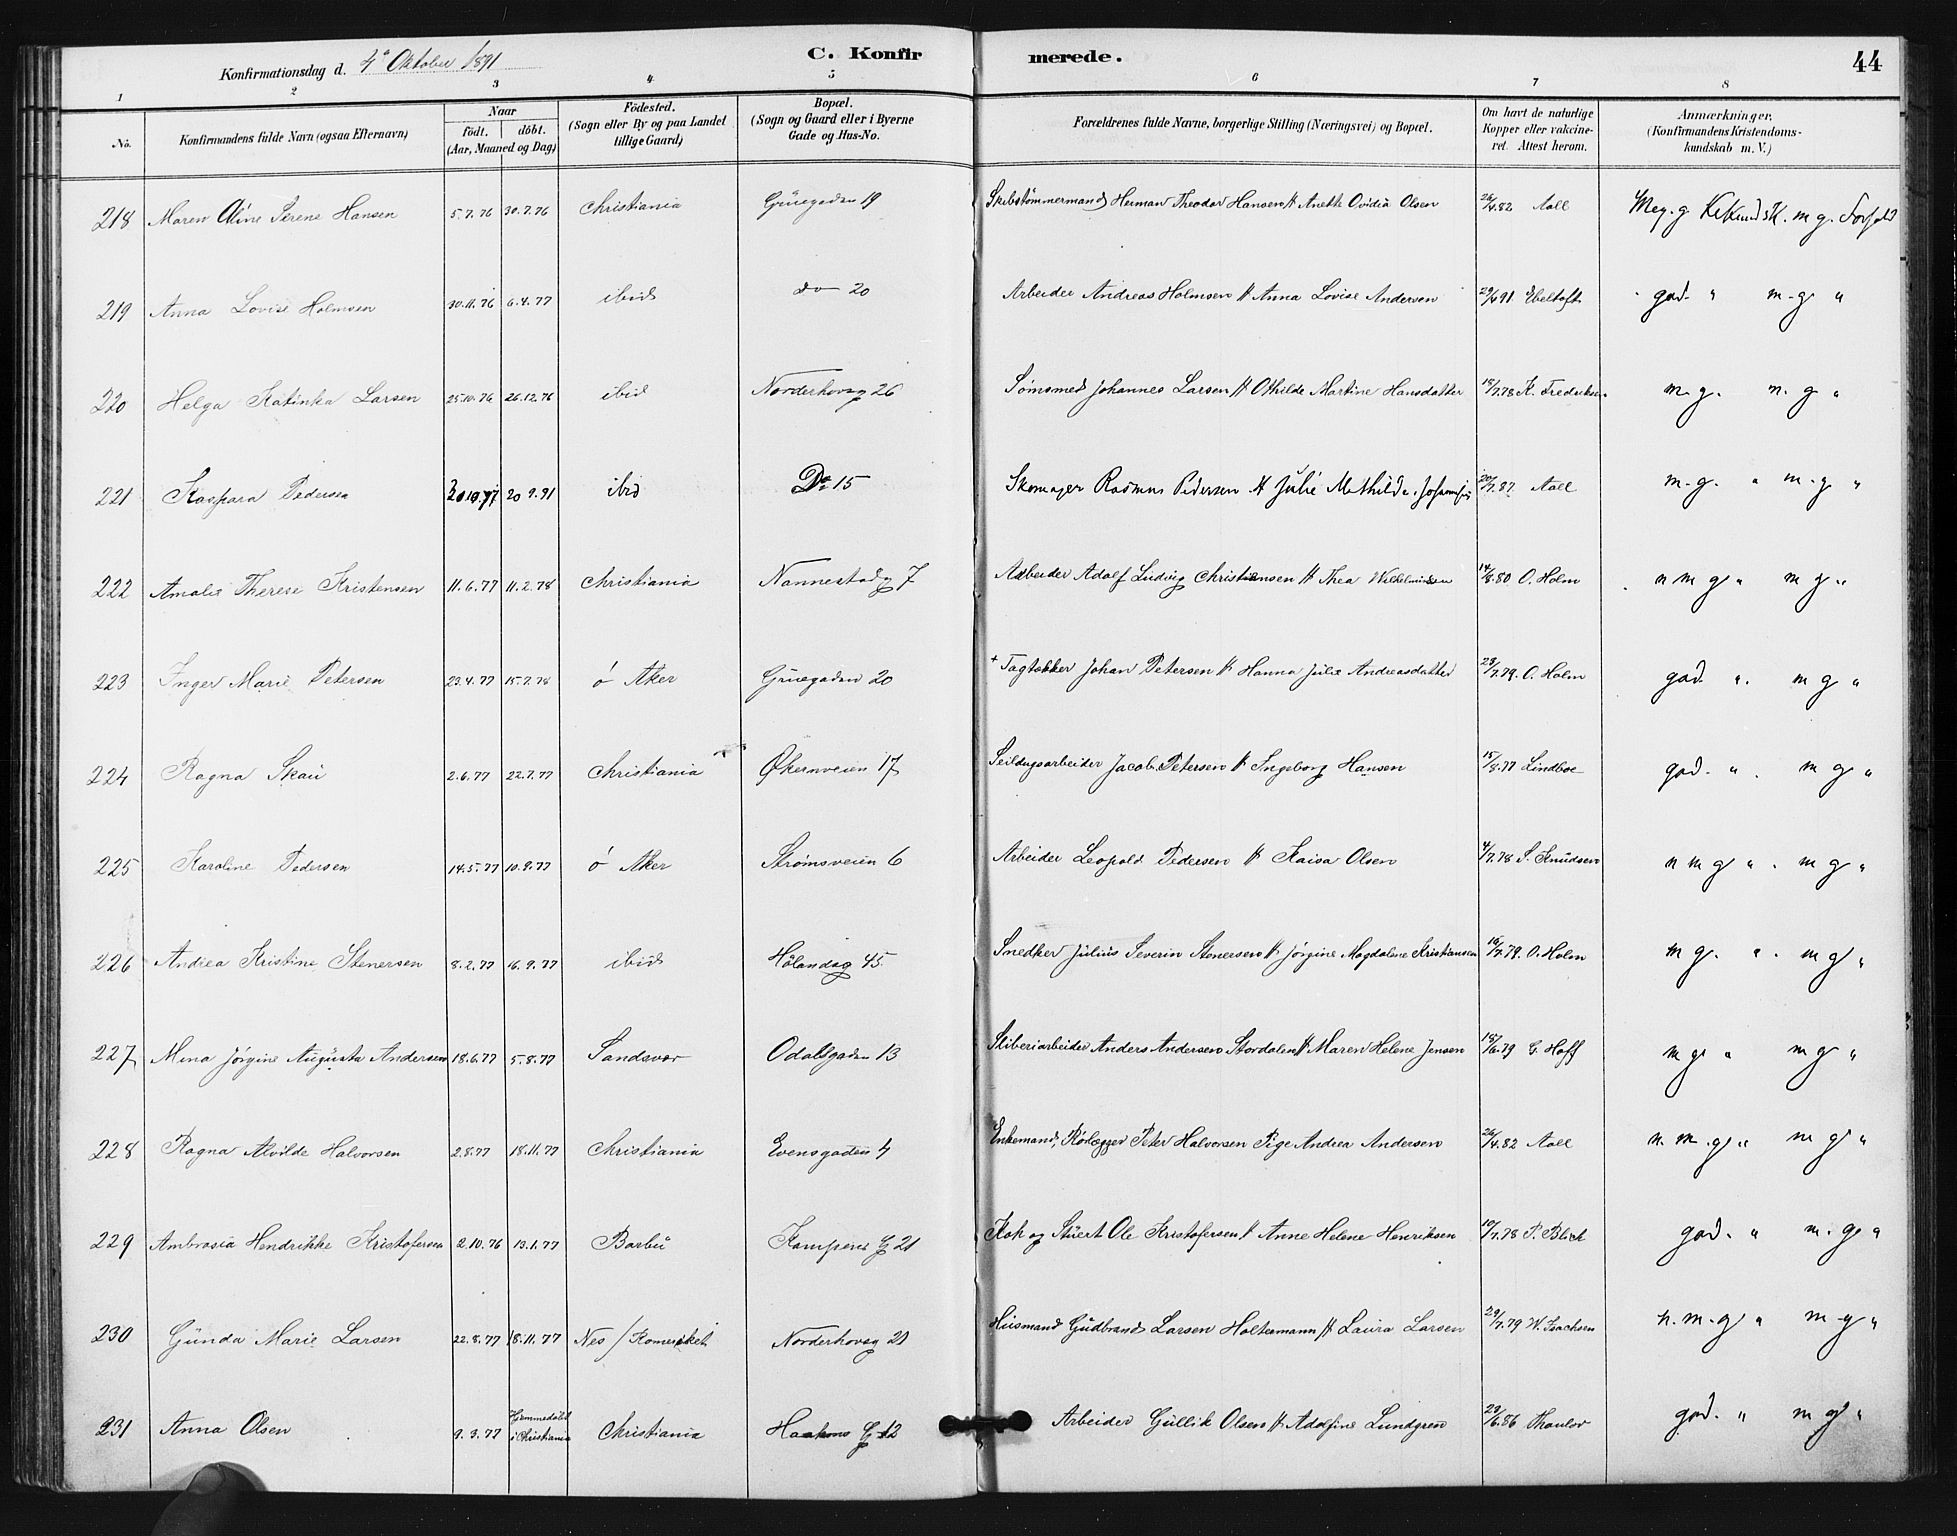 Konfirmationsdag d. 4de Oktober 1891 C. Konfirmerede. 44
1 2 3 4 5 6 7 8
No. Konfirmandens fulde Navn (ogsaa Efternavn) Naar födt. döbt. (Aar, Maaned og Dag) Födested. (Sogn eller By og paa Landet tillige Gaard) Bopæl. (Sogn og Gaard eller i Byerne Gade og Hus-No. Forældrenes fulde Navne, borgerlige Stilling (Næringsvei) og Bopæl. Om havt de naturlige Kopper eller vakcineret. Attest herom. Anmærkninger. (Konfirmandens Kristendomskundskab m. V.)
218 Maren Oline Serene Hansen 5.7.76 30.7.76 Christiania Grüegaden 19 Skibstömmermand Herman Theodor Hansen & Anette Ovidia Olsen 26/4.82 Aall Meg. g. Kr. Kundsk. m g. Forhold
219 Anna Lovise Holmsen 30.11.76 6.4.77 ibid do 20 Arbeider Andreas Holmsen & Anna Lovise Andersen 29/6 91 Ebeltoft god. " m.g "
220 Helga Katinka Larsen 25.10.76 26.12.76 ibid Norderhovsg 26 Sömsmed Johannes Larsen & Othilde Martine Hansdatter 18/7.78 K. Fredriksen m.g. m.g "
221 Kaspara Pedersen 20 9.91 ibid Do 15 Skomager Rasmus Pedersen & Julie Mathilde 20/7.87. Aall m.g. " m.g "
222 Amalie Therese Kristensen 11.6.77 11.2.78 Christiania Nannestadg 7 Arbeider Adolf Ludvig Christiansen & Thea Wilhelmsen 14/8.80 O. Holm n m g " m g "
223 Inger Marie Petersen 23.4.77 15.7.78 ö Aker Grüegaden 20 + Tagtækker Johan Petersen & Hanna Julie Andreasdatter 23/7.79. O. Holm god. " m g "
224 Ragna Skau 2.6.77 22.7.77 Christiania Økernveien 17 Seildugsarbeider Jacob Petersen & Ingeborg Hansen 15/8.77 Lindboe god. " m g "
225 Karoline Pedersen 14.5.77 10.9.77 ö Aker Strömsveien 6 Arbeider Leopold Pedersen & Kaisa Olsen 4/7.78 S. Knudsen n m g " m g "
226 Andrea Kristine Stenersen 8.2.77 16.9.77 ibid Hölandsg 45 Snedker Julius Severin Stenersen & Jörgine Magdalene Kristiansen 16/7.79. O. Holm m g. " m g "
227 Mina Jörgine Augusta Andersen 18.6.77 5.8.77 Sandsvær Odalsgaden 13 Sliberiarbeider Anders Andersen Stordalen & Maren Helene Jensen 18/6.79 G. Hoff m g " m g "
228 Ragna Alvilde Halvorsen 2.8.77 18.11.77 Christiania Evensgaden 4 Enkemand, Rörlægger Peter Halvorsen Pige Andrea Andersen 26/4.82 Aall n. m. g " m g "
229 Ambrosia Hendrikke Kristofersen 2.10.76 13.1.77 Barbu Kampens G 21 Kok og Stuert Ole Kristofersen & Anne Helene Henriksen 10/7.78 P. Blich god. " m.g "
230 Günda Marie Larsen 22.8.77 18.11.77 Nes / Romeriket Norderhovsg 21 Husmand Gudbrand Larsen Holtermann & Laura Larsen 29/7.79 W. Isachsen n.m.g " m g "
231 Anna Olsen 9.3.77 Hjemmedöbt i Christiania Christiania Haakons G 12 Arbeider Gullik Olsen & Adolfine Lundgren 23/6.86 Thaulow god. " m g "